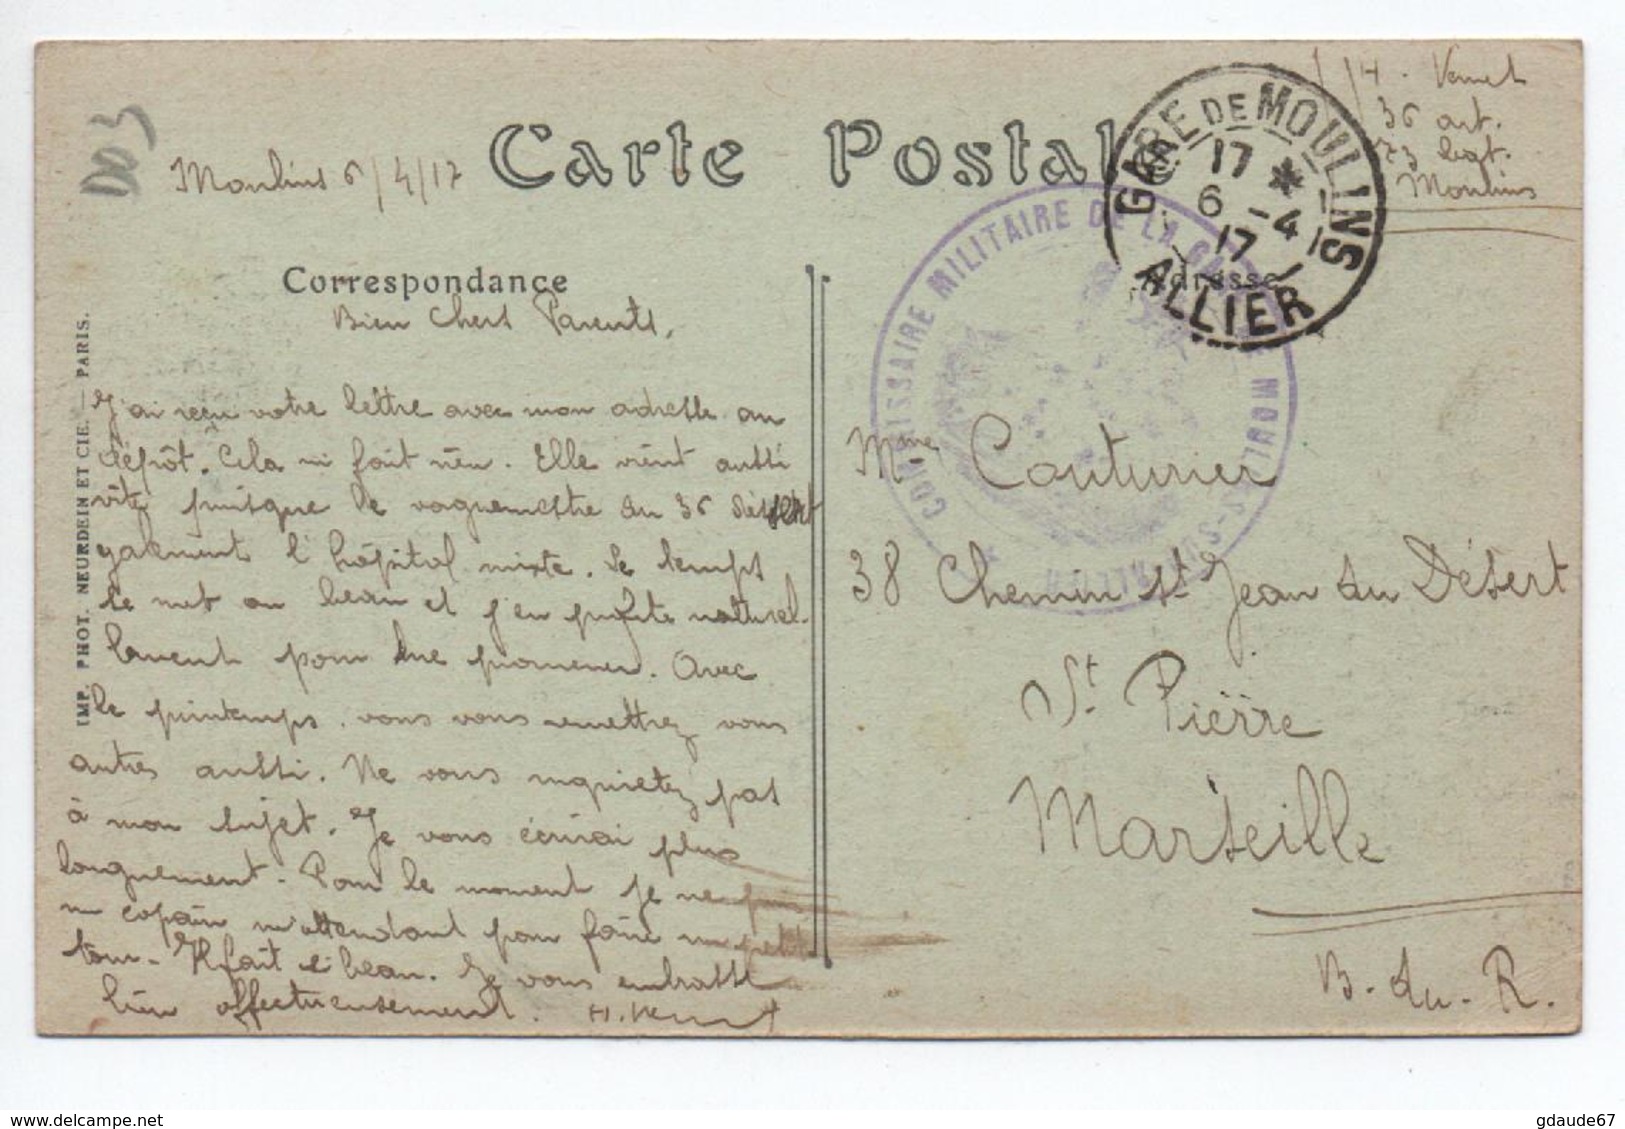 D03
Moulins 6/4/17
Carte Postale
H. Vernet
36 art.
Moulins
GARE DE MOULINS
17 *
6 - 4
17
ALLIER
COMMISSAIRE MILITAIRE DE LA GARE DE MOULINS-SUR-ALLIER
Correspondance
Adresse
Bien Chers Parents,
J'ai reçu votre lettre avec mon adresse au
dépôt. Cela ni fait rien. Elle vient aussi
vite puisque le vaguemestre du 36 dessert
également l'hôpital mixte. Le temps
se met au beau et j'en profite naturel-
lement pour me promener. Avec
le printemps vous vous remettrez vous
autres aussi. Ne vous inquietez pas
à mon sujet. Je vous écrirai plus
longuement. Pour le moment je ne puis
un copain m'attendant pour faire un petit
tour. Il fait si beau. Je vous embrasse
bien affectueusement. H. Vernet
Mme Couturier
38 Chemin St Jean du Désert
St. Pierre
Marseille
B. du. R.
IMP. PHOT. NEURDEIN ET CIE. — PARIS.
www.delcampe.net
gdaude67